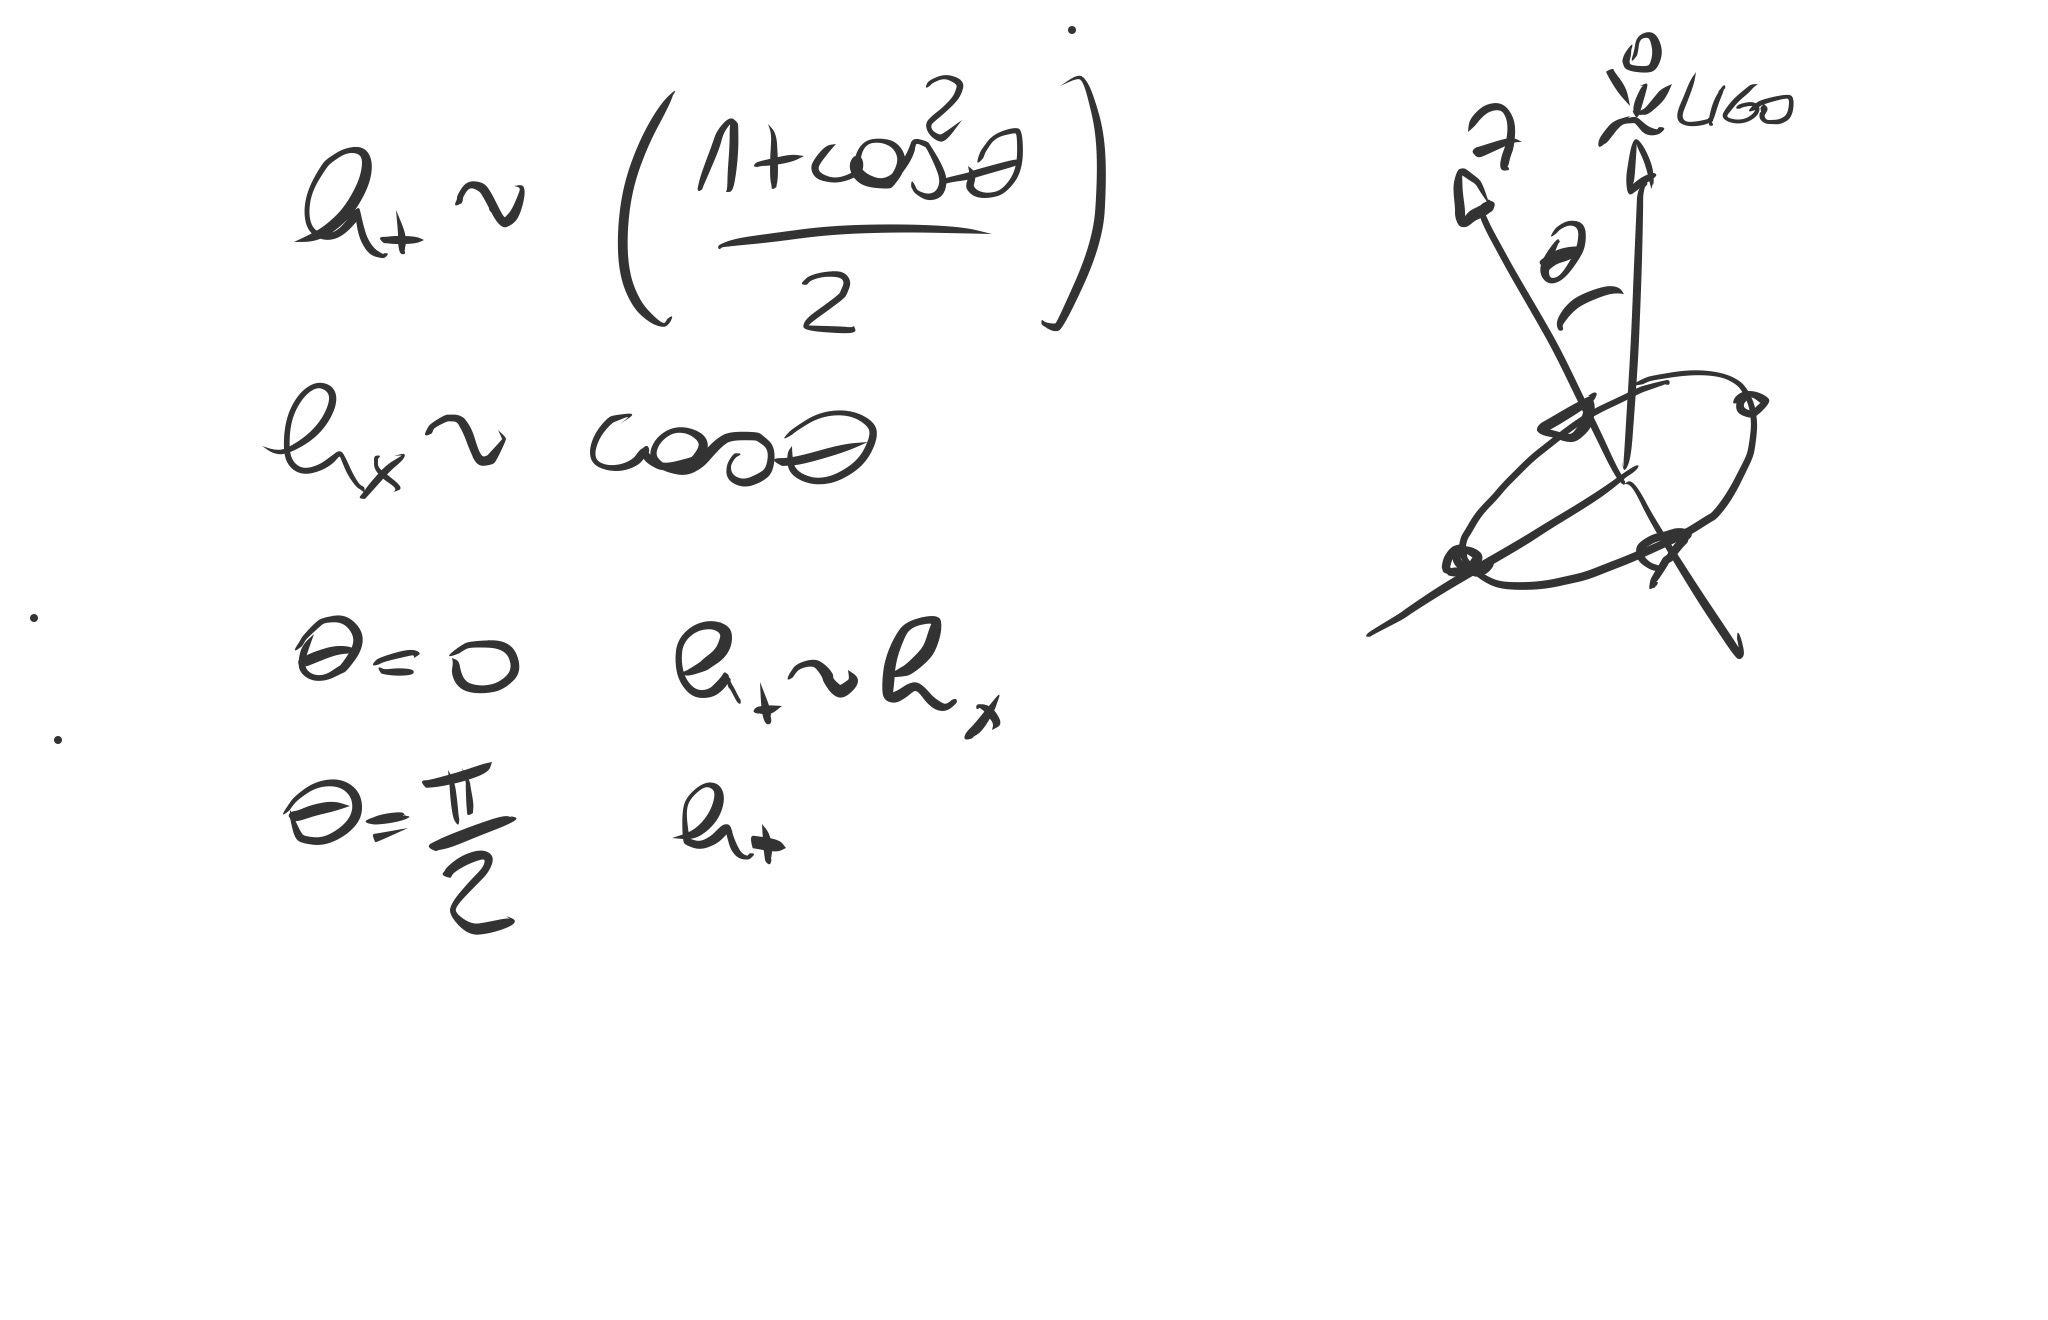 h₊ ~ ((1+cos²θ)/2)
hₓ ~ cosθ
θ=0 h₊ ~ hₓ
θ=π/2 h₊
LIGO
θ